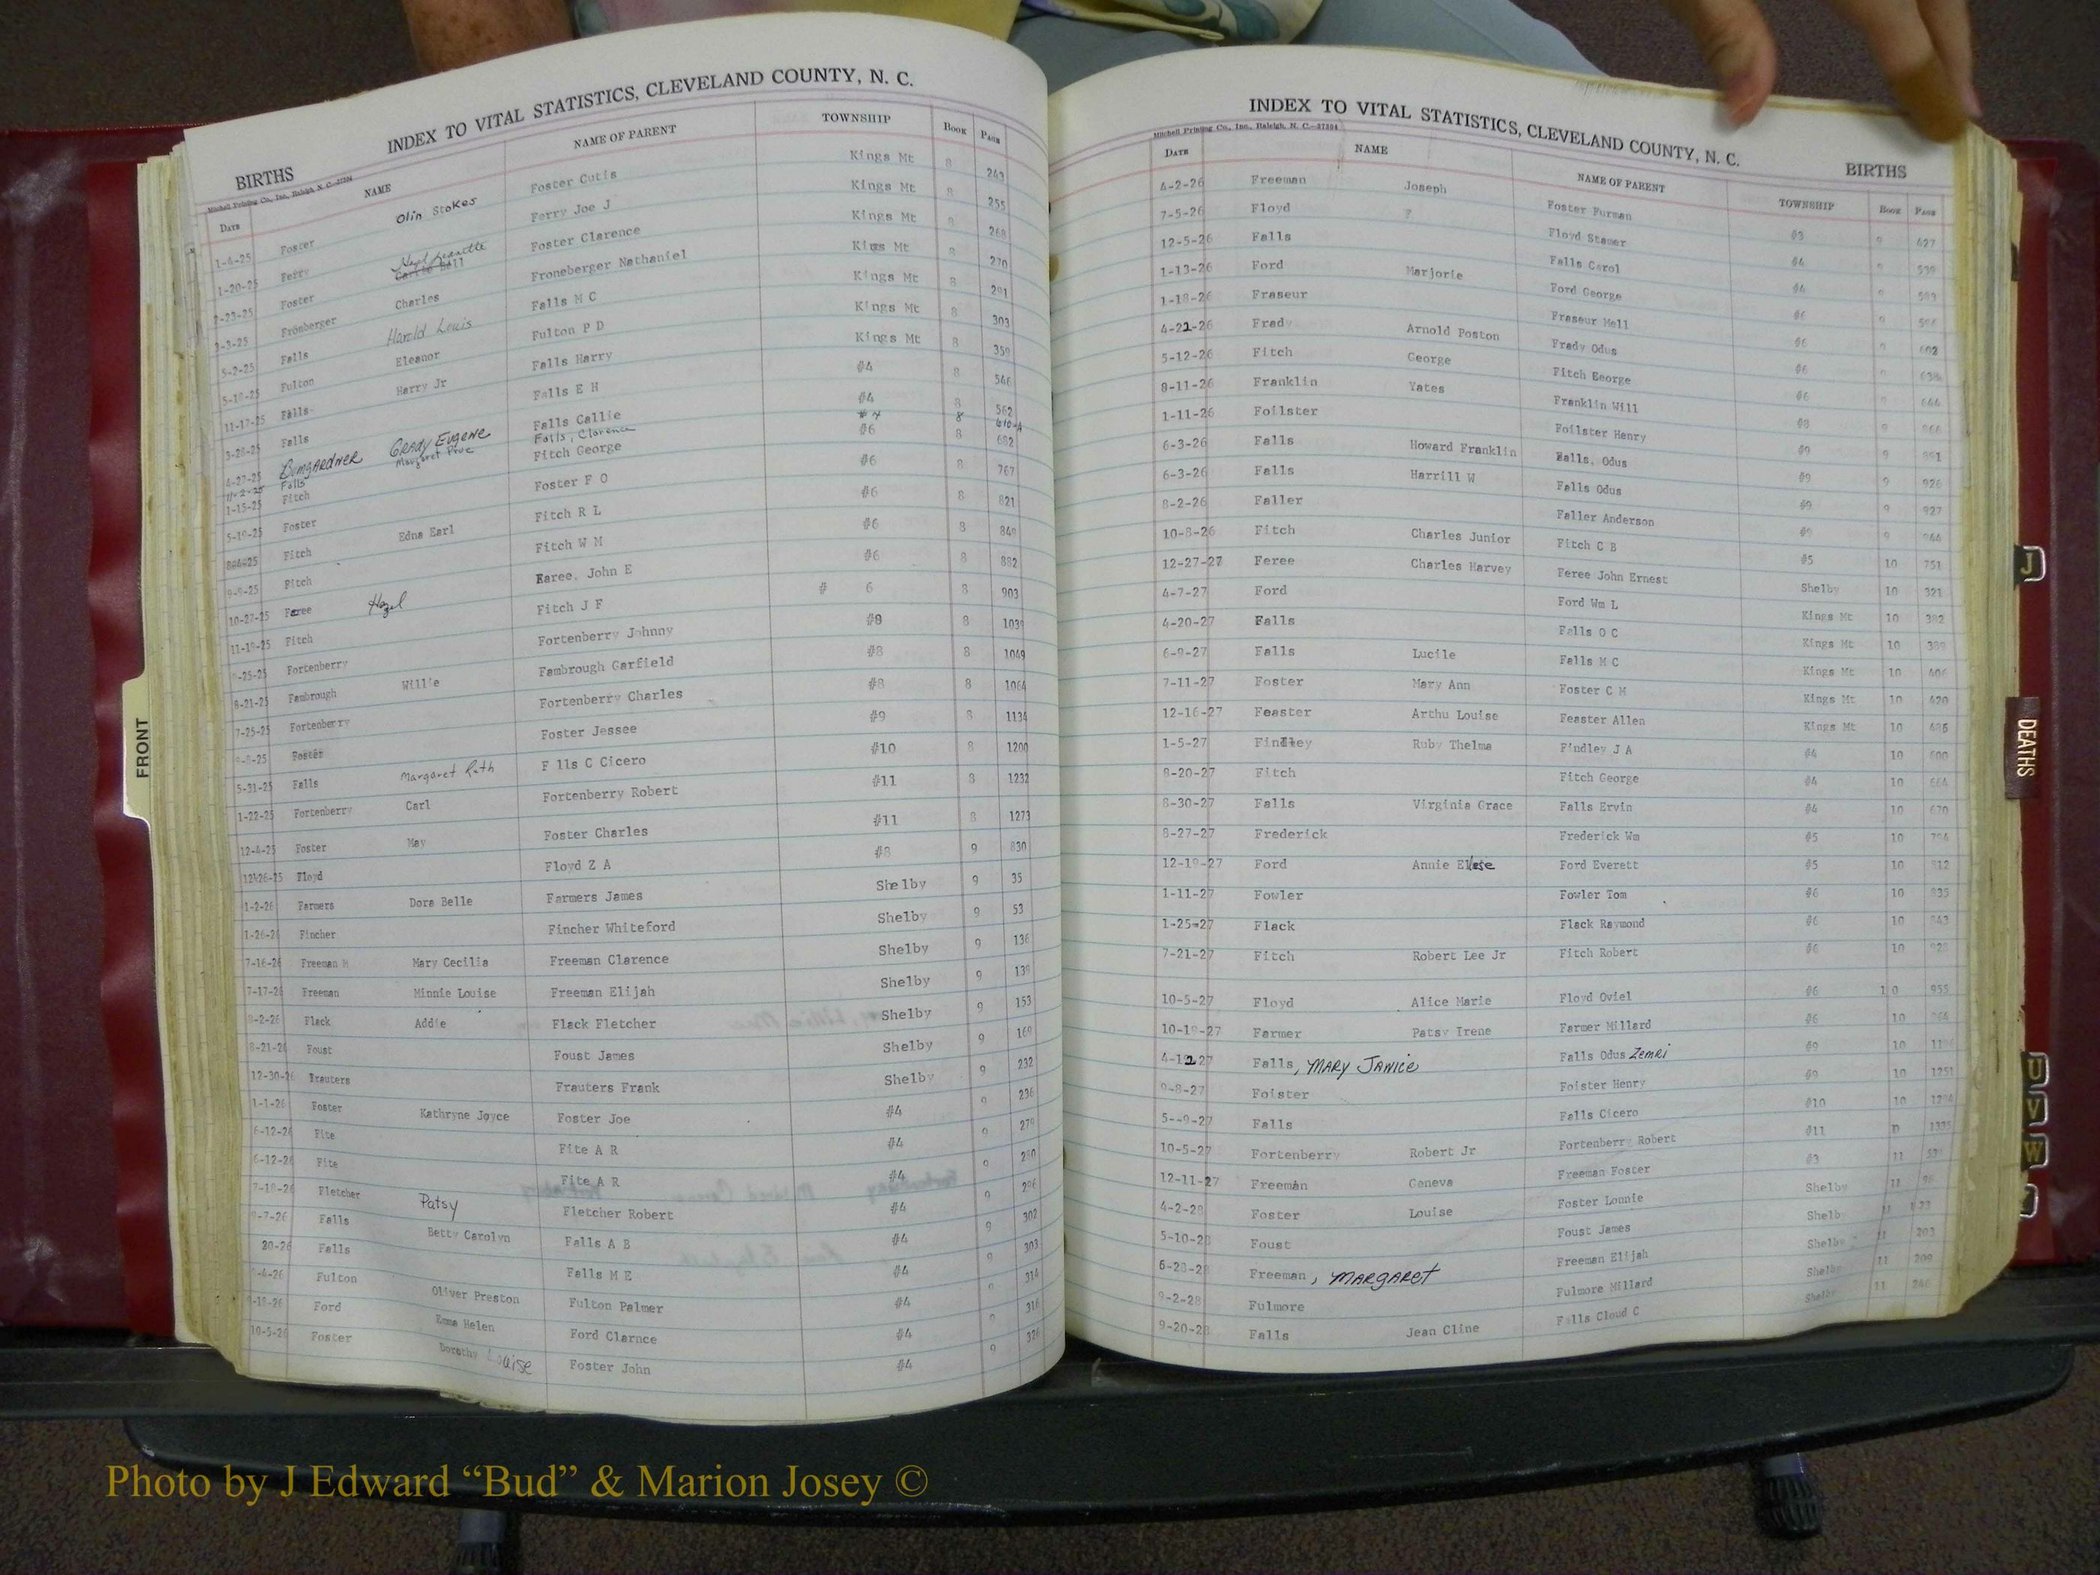 INDEX TO VITAL STATISTICS, CLEVELAND COUNTY, N. C.
BIRTHS
Mitchell Printing Co., Inc., Raleigh, N. C.
DATE NAME NAME OF PARENT TOWNSHIP BOOK PAGE
1-4-25 Foster Olin Stokes Foster Cutis Kings Mt 8 243
1-20-25 Ferry Ferry Joe J Kings Mt 8 255
2-23-25 Foster Charles Foster Clarence Kings Mt 8 268
3-3-25 Fronberger Froneberger Nathaniel Kings Mt 8 270
5-2-25 Falls Harold Louis Falls M C Kings Mt 8 291
5-10-25 Fulton Eleanor Fulton P D Kings Mt 8 303
11-17-25 Falls Harry Jr Falls Harry Kings Mt 8 359
3-28-25 Falls Falls E H #4 8 546
4-27-25 Bumgardner Grady Eugene Falls Callie #4 8 562
11-2-25 Falls Margaret Falls, Clarence #4 8 610-A
1-15-25 Fitch Fitch George #6 8 682
5-19-25 Foster Foster F O #6 8 767
Fitch Edna Earl Fitch R L #6 8 821
9-9-25 Fitch Fitch W M #6 8 849
10-27-25 Feree Hazel Earee, John E #6 8 882
11-19-25 Fitch Fitch J F # 6 8 903
Fortenberry Fortenberry Johnny #8 8 1039
8-21-25 Fambrough Willie Fambrough Garfield #8 8 1049
7-25-25 Fortenberry Fortenberry Charles #8 8 1064
Foster Foster Jessee #9 8 1134
5-31-25 Falls Margaret Ruth F lls C Cicero #10 8 1200
1-22-25 Fortenberry Carl Fortenberry Robert #11 8 1232
12-4-25 Foster May Foster Charles #11 8 1273
Floyd Floyd Z A #8 9 830
1-2-26 Farmers Dora Belle Farmers James Shelby 9 35
1-26-26 Fincher Fincher Whiteford Shelby 9 53
7-16-26 Freeman M Mary Cecilia Freeman Clarence Shelby 9 136
7-17-26 Freeman Minnie Louise Freeman Elijah Shelby 9 139
8-2-26 Flack Addie Flack Fletcher Shelby 9 153
8-21-26 Foust Foust James Shelby 9 169
12-30-26 Frauters Frauters Frank Shelby 9 232
1-1-26 Foster Kathryne Joyce Foster Joe #4 9 236
6-12-26 Fite Fite A R #4 9 279
6-12-26 Fite Fite A R #4 9 280
7-18-26 Fletcher Patsy Fletcher Robert #4 9 296
9-7-26 Falls Betty Carolyn Falls A B #4 9 302
20-26 Falls Falls M E #4 9 303
4-26 Fulton Oliver Preston Fulton Palmer #4 9 314
9-19-26 Ford Emma Helen Ford Clarnce #4 9 316
10-5-26 Foster Dorothy Louise Foster John #4 9 326
INDEX TO VITAL STATISTICS, CLEVELAND COUNTY, N. C.
BIRTHS
Mitchell Printing Co., Inc., Raleigh, N. C.—27394
DATE NAME NAME OF PARENT TOWNSHIP BOOK PAGE
4-2-26 Freeman Joseph Foster Furman #3 9 427
7-5-26 Floyd F Floyd Stamer #4 9 539
12-5-26 Falls Falls Carol #4 9
1-13-26 Ford Marjorie Ford George #6 9
1-18-26 Fraseur Fraseur Mell #6 9 602
4-22-26 Frady Arnold Poston Frady Odus #6 9
5-12-26 Fitch George Fitch Eeorge #6 9 644
8-11-26 Franklin Yates Franklin Will #8 9
1-11-26 Foilster Foilster Henry #9 9 891
6-3-26 Falls Howard Franklin Falls, Odus #9 9 926
6-3-26 Falls Harrill W Falls Odus #9 9 927
8-2-26 Faller Faller Anderson #9 9 944
10-8-26 Fitch Charles Junior Fitch C B #5 10 751
12-27-27 Feree Charles Harvey Feree John Ernest Shelby 10 321
4-7-27 Ford Ford Wm L Kings Mt 10 382
4-20-27 Falls Falls O C Kings Mt 10 389
6-9-27 Falls Lucile Falls M C Kings Mt 10 406
7-11-27 Foster Mary Ann Foster C M Kings Mt 10 420
12-16-27 Feaster Arthu Louise Feaster Allen Kings Mt 10 486
1-5-27 Findley Ruby Thelma Findley J A #4 10 600
8-20-27 Fitch Fitch George #4 10 664
8-30-27 Falls Virginia Grace Falls Ervin #4 10 670
8-27-27 Frederick Frederick Wm #5 10 794
12-19-27 Ford Annie Ellese Ford Everett #5 10 812
1-11-27 Fowler Fowler Tom #6 10 835
1-25-27 Flack Flack Raymond #6 10 843
7-21-27 Fitch Robert Lee Jr Fitch Robert #6 10 928
10-5-27 Floyd Alice Marie Floyd Oviel #6 10 955
10-19-27 Farmer Patsy Irene Farmer Millard #6 10 964
4-12-27 Falls, MARY JANICE Falls Odus Zemri #9 10
9-8-27 Foister Foister Henry #9 10 1251
5--9-27 Falls Falls Cicero #10 10 1294
10-5-27 Fortenberry Robert Jr Fortenberry Robert #11 1335
12-11-27 Freeman Geneva Freeman Foster #3 11
4-2-28 Foster Louise Foster Lonnie Shelby 11
5-10-28 Foust Foust James Shelby 11 203
6-28-28 Freeman, MARGARET Freeman Elijah Shelby 11 209
9-2-28 Fulmore Fulmore Millard Shelby 11 246
9-20-28 Falls Jean Cline Falls Cloud C Shelby
FRONT
J
DEATHS
U
V
W
Photo by J Edward “Bud” & Marion Josey ©